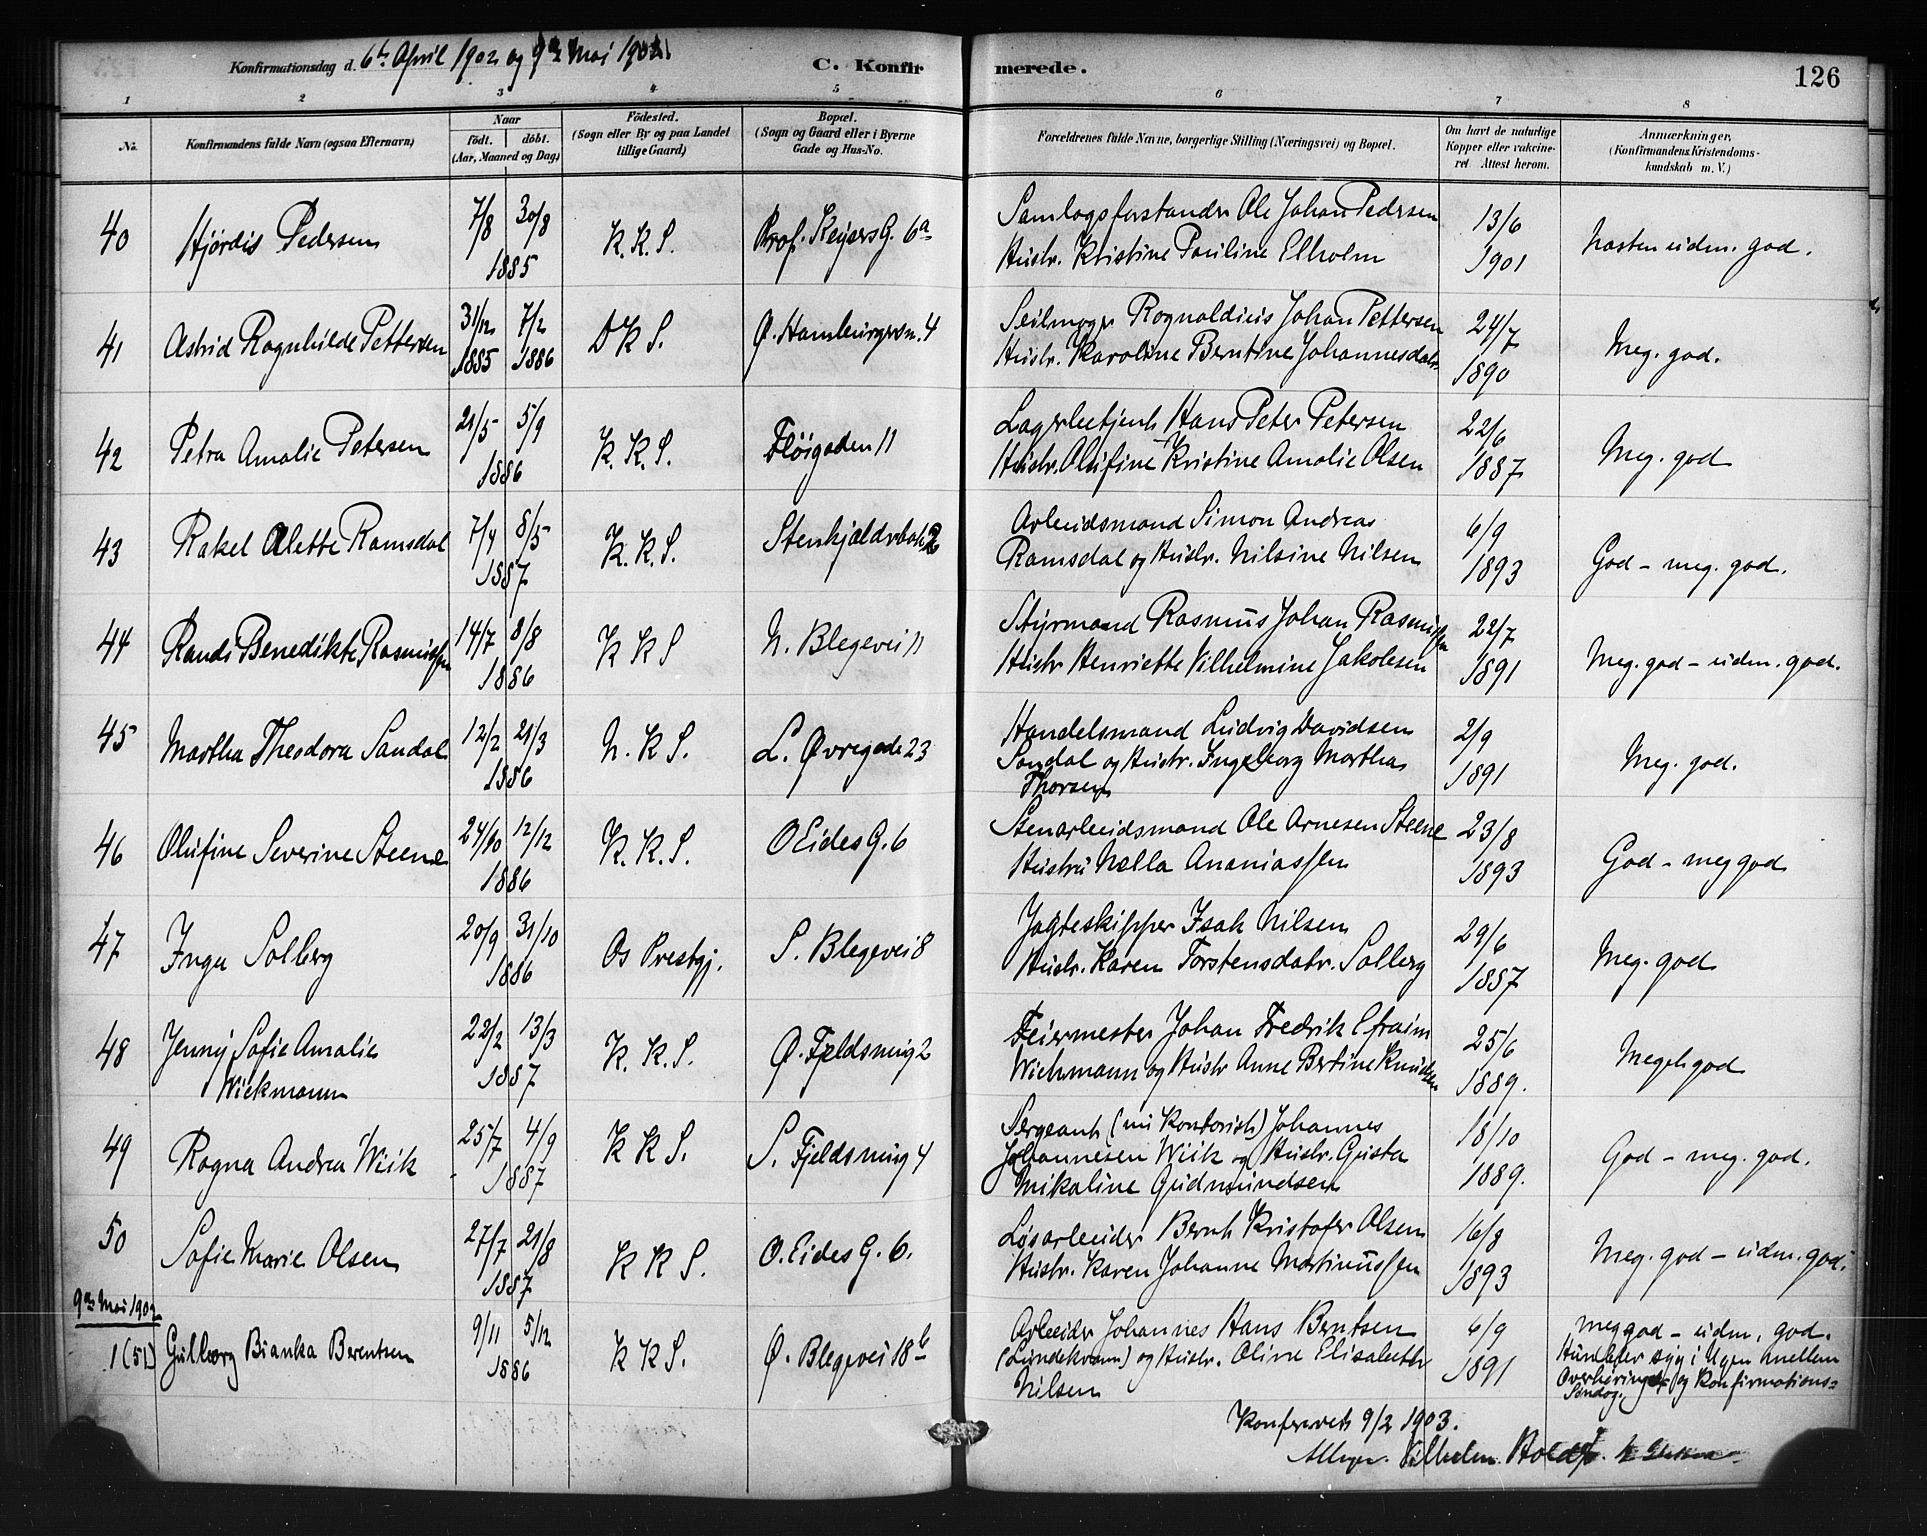 Konfirmationsdag d. 6te April 1902 og 9de Mai 1902.
C. Konfirmerede.
126
1 2 3 4 5 6 7 8
No.
Konfirmandens fulde Navn (ogsaa Efternavn)
Naar
født. døbt.
(Aar, Maaned og Dag)
Fødested.
(Sogn eller By og paa Landet
tillige Gaard)
Bopæl.
(Sogn og Gaard eller i Byerne
Gade og Hus-No.
Forældrenes fulde Navne, borgerlige Stilling (Næringsvei) og Bopæl.
Om havt de naturlige
Kopper eller vakcine-
ret Attest herom.
Anmærkninger,
(Konfirmandens Kristendoms-
kundskab m. V.)
40 Hjördis Pedersen 7/8 30/8 1885 K. K. S. Prof. Keysers G. 6a
Samlagsforstander Ole Johan Pedersen
Hustr. Kristine Pauline Elholm
13/6 1901 Næsten udm. god.
41 Astrid Ragnhilde Pettersen 31/12 1885 7/2 1886 D K S. Ø. Hamburgersm. 4
Seilmager Rognaldius Johan Pettersen
Hustr. Karoline Berntine Johannesdatr.
24/7 1890 Meg. god.
42 Petra Amalie Petersen 21/5 5/9 1886 K. K. S. Fløigaden 11
Lagerbetjent Hans Peter Petersen
Hustr. Olufine Kristine Amalie Olsen
22/6 1887 Meg. god
43 Rakel Alette Ramsdal 7/4 8/5 1887 K. K. S. Stenkjældrbak 2
Arbeidsmand Simon Andreas
Ramsdal og Hustr. Nilsine Nilsen
6/9 1893 God - meg. god.
44 Randi Benedikte Rasmussen 14/7 8/8 1886 K K S N. Blegevei 11
Styrmand Rasmus Johan Rasmussen
Hustr Henriette Vilhelmine Jakobsen
22/7 1891 Meg. god - udm. god.
45 Martha Theodora Sandal 12/2 21/3 1886 N. K S. L. Øvregade 23
Handelsmand Ludvig Davidsen
Sandal og Hustr. Ingeborg Martha
Thorsen
2/9 1891 Meg. god.
46 Olufine Severine Steene 24/10 12/12 1886 K. K. S. O Eides G. 6
Stenarbeidsmand Ole Arnesen Steene
Hustru Nella Ananiassen
23/8 1893 God - meg god
47 Inga Solberg 20/9 31/10 1886 Os Prestgj. S. Blegevei 8
Jagteskipper Isak Nilsen
Hustr. Karen Torstensdatr. Solberg
29/6 1887 Meg. god
48 Jenny Sofie Amalie
Wickmann 22/2 13/3 1887 K. K. S. Ø. Fjeldsmug 2
Feiermester Johan Fredrik Efraim
Wichmann og Hustr Anne Bertine Knudsen
25/6 1889. Meget god
49 Ragna Andrea Wiik 25/7 4/9 1887 K K S. S. Fjeldsmug 4
Sergeant (nu Kontorist) Johannes
Johannesen Wiik og Hustr. Gusta
Mikaline Gudmundsen
18/10 1889. God - meg. god.
50 Sofie Marie Olsen 27/7 21/8 1887 K K S. O. Eides G. 6.
Løsarbeider Bernt Kristofer Olsen
Hustr. Karen Johanne Martinussen
16/8 1893 Meg. god - udm. god.
9de Mai 1902
1 (51) Gulborg Bianka Berentsen 9/11 5/12 1886 K K S. Ø. Blegevei 18b
Arbeider Johannes Hans Berntsen
(Lundekvam) og Hustr. Oline Elisabeth
Nilsen
6/9 1891 meg god - udm. god.
Hun blev syg i Ugen mellem
Overhøring og Konfirmations-
Søndag.
Konfereret 9/2 1903.
Vilhelm Hold